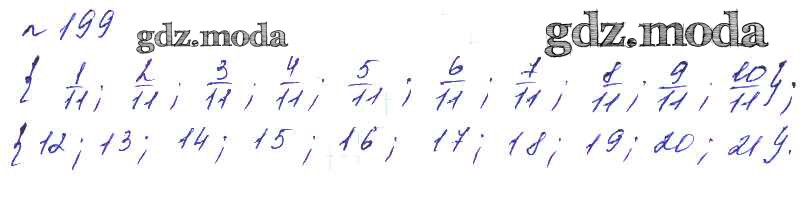 № 199 gdz.moda gdz.moda
{ 1/11; 2/11; 3/11; 4/11; 5/11; 6/11; 7/11; 8/11; 9/11; 10/11 };
{ 12; 13; 14; 15; 16; 17; 18; 19; 20; 21 }.